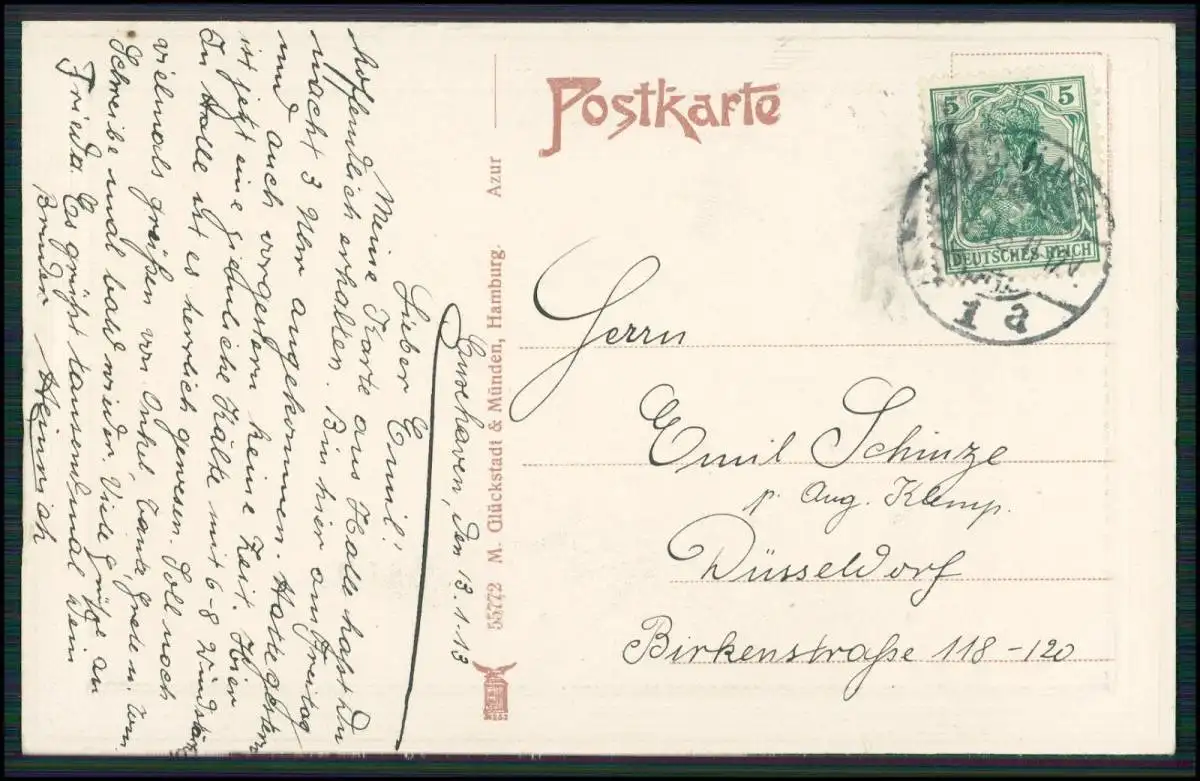 Postkarte
5 5
DEUTSCHES REICH
1 a
Herrn
Emil Schinze
p. Aug. Klemp.
Düsseldorf
Birkenstraße 118-120
55772 M. Glückstadt & Münden, Hamburg. Azur
Cuxhaven, den 13.1.13
Lieber Emil!
Meine Karte aus Halle hast Du
hoffentlich erhalten. Bin hier am Freitag
nacht 3 Uhr angekommen. Hatte gestern
und auch vorgestern keine Zeit. Hier
ist jetzt eine ziemliche Kälte mit 6-8 Windstärken
In Halle ist es herrlich gewesen. Soll noch
vielmals grüßen von Onkel, Tante, Grete u. von
Schreibe mal bald wieder. Viele Grüße an
Frieda. Es grüßt tausendmal Dein
Bruder Heinrich